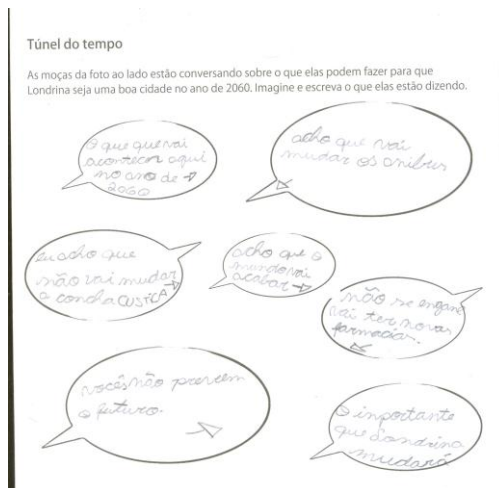 Túnel do tempo
As moças da foto ao lado estão conversando sobre o que elas podem fazer para que
Londrina seja uma boa cidade no ano de 2060. Imagine e escreva o que elas estão dizendo.
o que que vai
acontecer aqui
no ano de
2060
acho que vai
mudar os onibus
eu acho que
não vai mudar
a concha CUSTICA
acho que o
mundo vai
acabar
não se engane
vai ter novas
farmacias.
vocês não prevem
o futuro.
o inportante
que Londrina
mudará